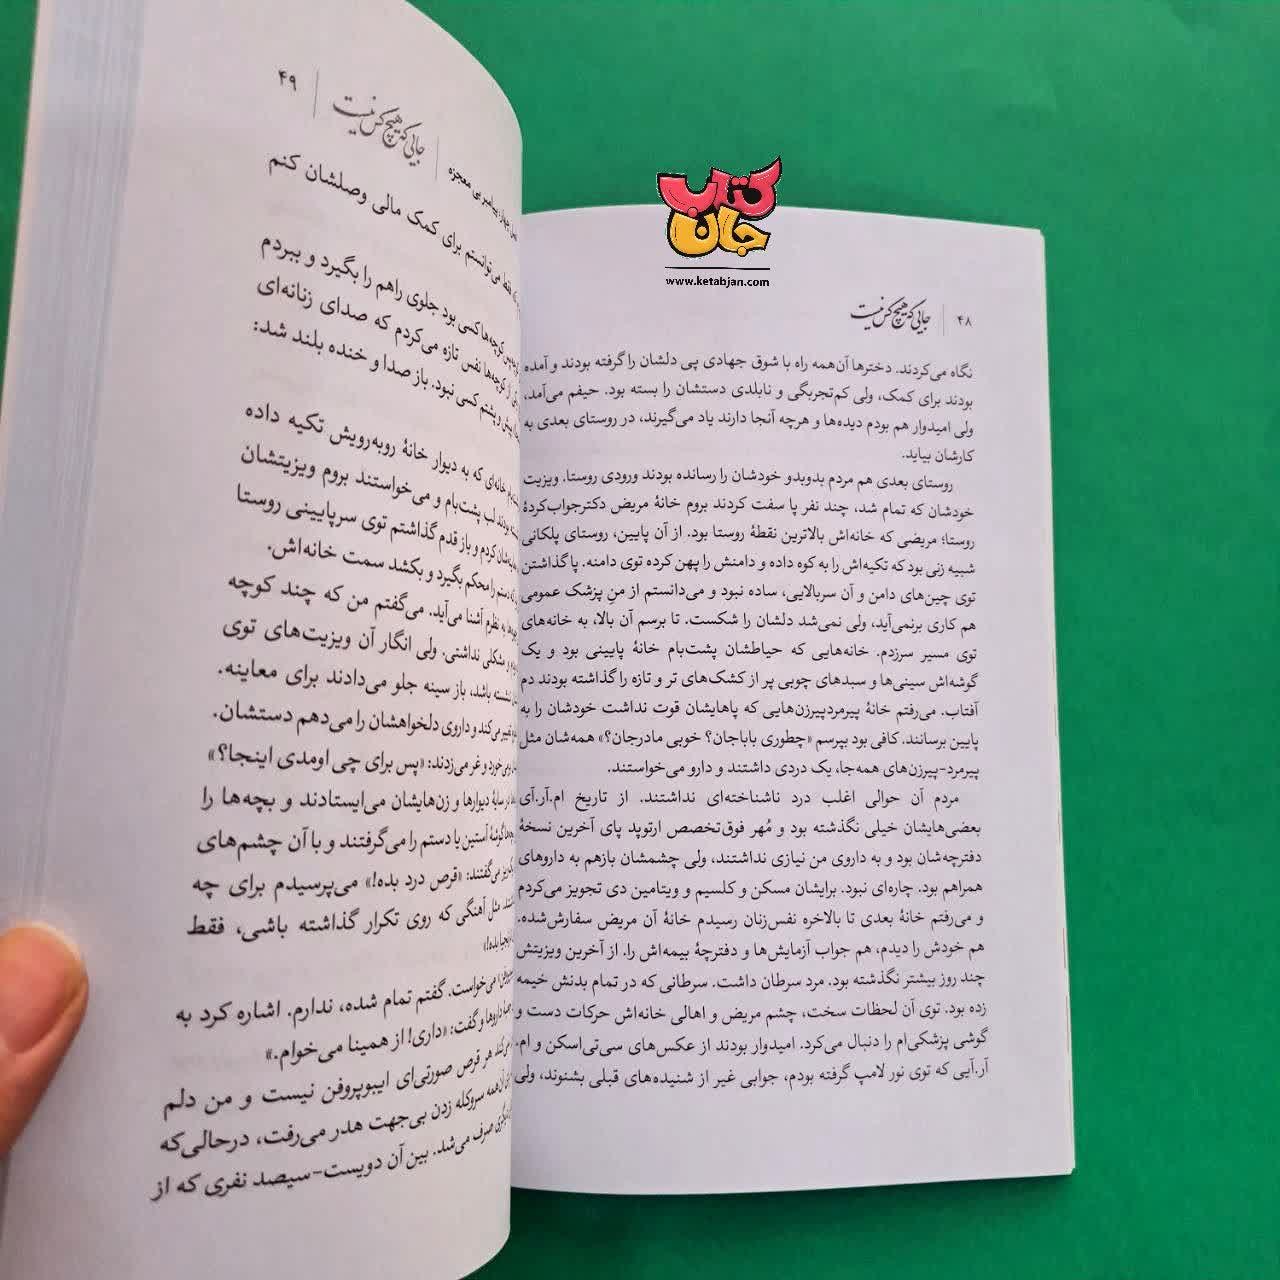 کتاب
جان
www.ketabjan.com
۴۸ | جایی که هیچ کس نیست
نگاه می‌کردند. دخترها آن‌همه راه با شوق جهادی پی دلشان را گرفته بودند و آمده
بودند برای کمک، ولی کم‌تجربگی و نابلدی دستشان را بسته بود. حیفم می‌آمد،
ولی امیدوار هم بودم دیده‌ها و هرچه آنجا دارند یاد می‌گیرند، در روستای بعدی به
کارشان بیاید.
روستای بعدی هم مردم بدوبدو خودشان را رسانده بودند ورودی روستا. ویزیت
خودشان که تمام شد، چند نفر پا سفت کردند بروم خانهٔ مریض دکترجواب‌کردهٔ
روستا؛ مریضی که خانه‌اش بالاترین نقطهٔ روستا بود. از آن پایین، روستای پلکانی
شبیه زنی بود که تکیه‌اش را به کوه داده و دامنش را پهن کرده توی دامنه. پا گذاشتن
توی چین‌های دامن و آن سربالایی، ساده نبود و می‌دانستم از منِ پزشک عمومی
هم کاری برنمی‌آید، ولی نمی‌شد دلشان را شکست. تا برسم آن بالا، به خانه‌های
توی مسیر سرزدم. خانه‌هایی که حیاطشان پشت‌بام خانهٔ پایینی بود و یک
گوشه‌اش سینی‌ها و سبدهای چوبی پر از کشک‌های تر و تازه را گذاشته بودند دم
آفتاب. می‌رفتم خانهٔ پیرمردپیرزن‌هایی که پاهایشان قوت نداشت خودشان را به
پایین برسانند. کافی بود بپرسم «چطوری باباجان؟ خوبی مادرجان؟» همه‌شان مثل
پیرمرد-پیرزن‌های همه‌جا، یک دردی داشتند و دارو می‌خواستند.
مردم آن حوالی اغلب درد ناشناخته‌ای نداشتند. از تاریخ ام.آر.آی
بعضی‌هایشان خیلی نگذشته بود و مُهر فوق‌تخصص ارتوپد پای آخرین نسخهٔ
دفترچه‌شان بود و به داروی من نیازی نداشتند، ولی چشمشان بازهم به داروهای
همراهم بود. چاره‌ای نبود. برایشان مسکن و کلسیم و ویتامین دی تجویز می‌کردم
و می‌رفتم خانهٔ بعدی تا بالاخره نفس‌زنان رسیدم خانهٔ آن مریض سفارش‌شده.
هم خودش را دیدم، هم جواب آزمایش‌ها و دفترچهٔ بیمه‌اش را. از آخرین ویزیتش
چند روز بیشتر نگذشته بود. مرد سرطان داشت. سرطانی که در تمام بدنش خیمه
زده بود. توی آن لحظات سخت، چشم مریض و اهالی خانه‌اش حرکات دست و
گوشی پزشکی‌ام را دنبال می‌کرد. امیدوار بودند از عکس‌های سی‌تی‌اسکن و ام.
آر.آیی که توی نور لامپ گرفته بودم، جوابی غیر از شنیده‌های قبلی بشنوند، ولی
پیامبر بی معجزه | جایی که هیچ کس نیست | ۴۹
فقط می‌توانستم برای کمک مالی وصلشان کنم
کوچه‌ها کسی بود جلوی راهم را بگیرد و ببردم
از کوچه‌ها نفس تازه می‌کردم که صدای زنانه‌ای
پیش و پشتم کسی نبود. باز صدا و خنده بلند شد:
خانه‌ای که به دیوار خانهٔ روبه‌رویش تکیه داده
بودند لب پشت‌بام و می‌خواستند بروم ویزیتشان
کردم و باز قدم گذاشتم توی سرپایینی روستا
دستم را محکم بگیرد و بکشد سمت خانه‌اش.
به نظرم آشنا می‌آید. می‌گفتم من که چند کوچه
و مشکلی نداشتی. ولی انگار آن ویزیت‌های توی
نشسته باشد، باز سینه جلو می‌دادند برای معاینه.
تغییر می‌کند و داروی دلخواهشان را می‌دهم دستشان.
و غر می‌زدند: «پس برای چی اومدی اینجا؟»
در سایهٔ دیوارها و زن‌هایشان می‌ایستادند و بچه‌ها را
گوشهٔ آستین یا دستم را می‌گرفتند و با آن چشم‌های
می‌گفتند: «قرص درد بده!» می‌پرسیدم برای چه
مثل آهنگی که روی تکرار گذاشته باشی، فقط
بده!»
می‌خواست. گفتم تمام شده، ندارم. اشاره کرد به
داروها و گفت: «داری! از همینا می‌خوام.»
هر قرص صورتی‌ای ایبوپروفن نیست و من دلم
آن‌همه سروکله زدن بی‌جهت هدر می‌رفت، درحالی‌که
صرف می‌شد. بین آن دویست-سیصد نفری که از